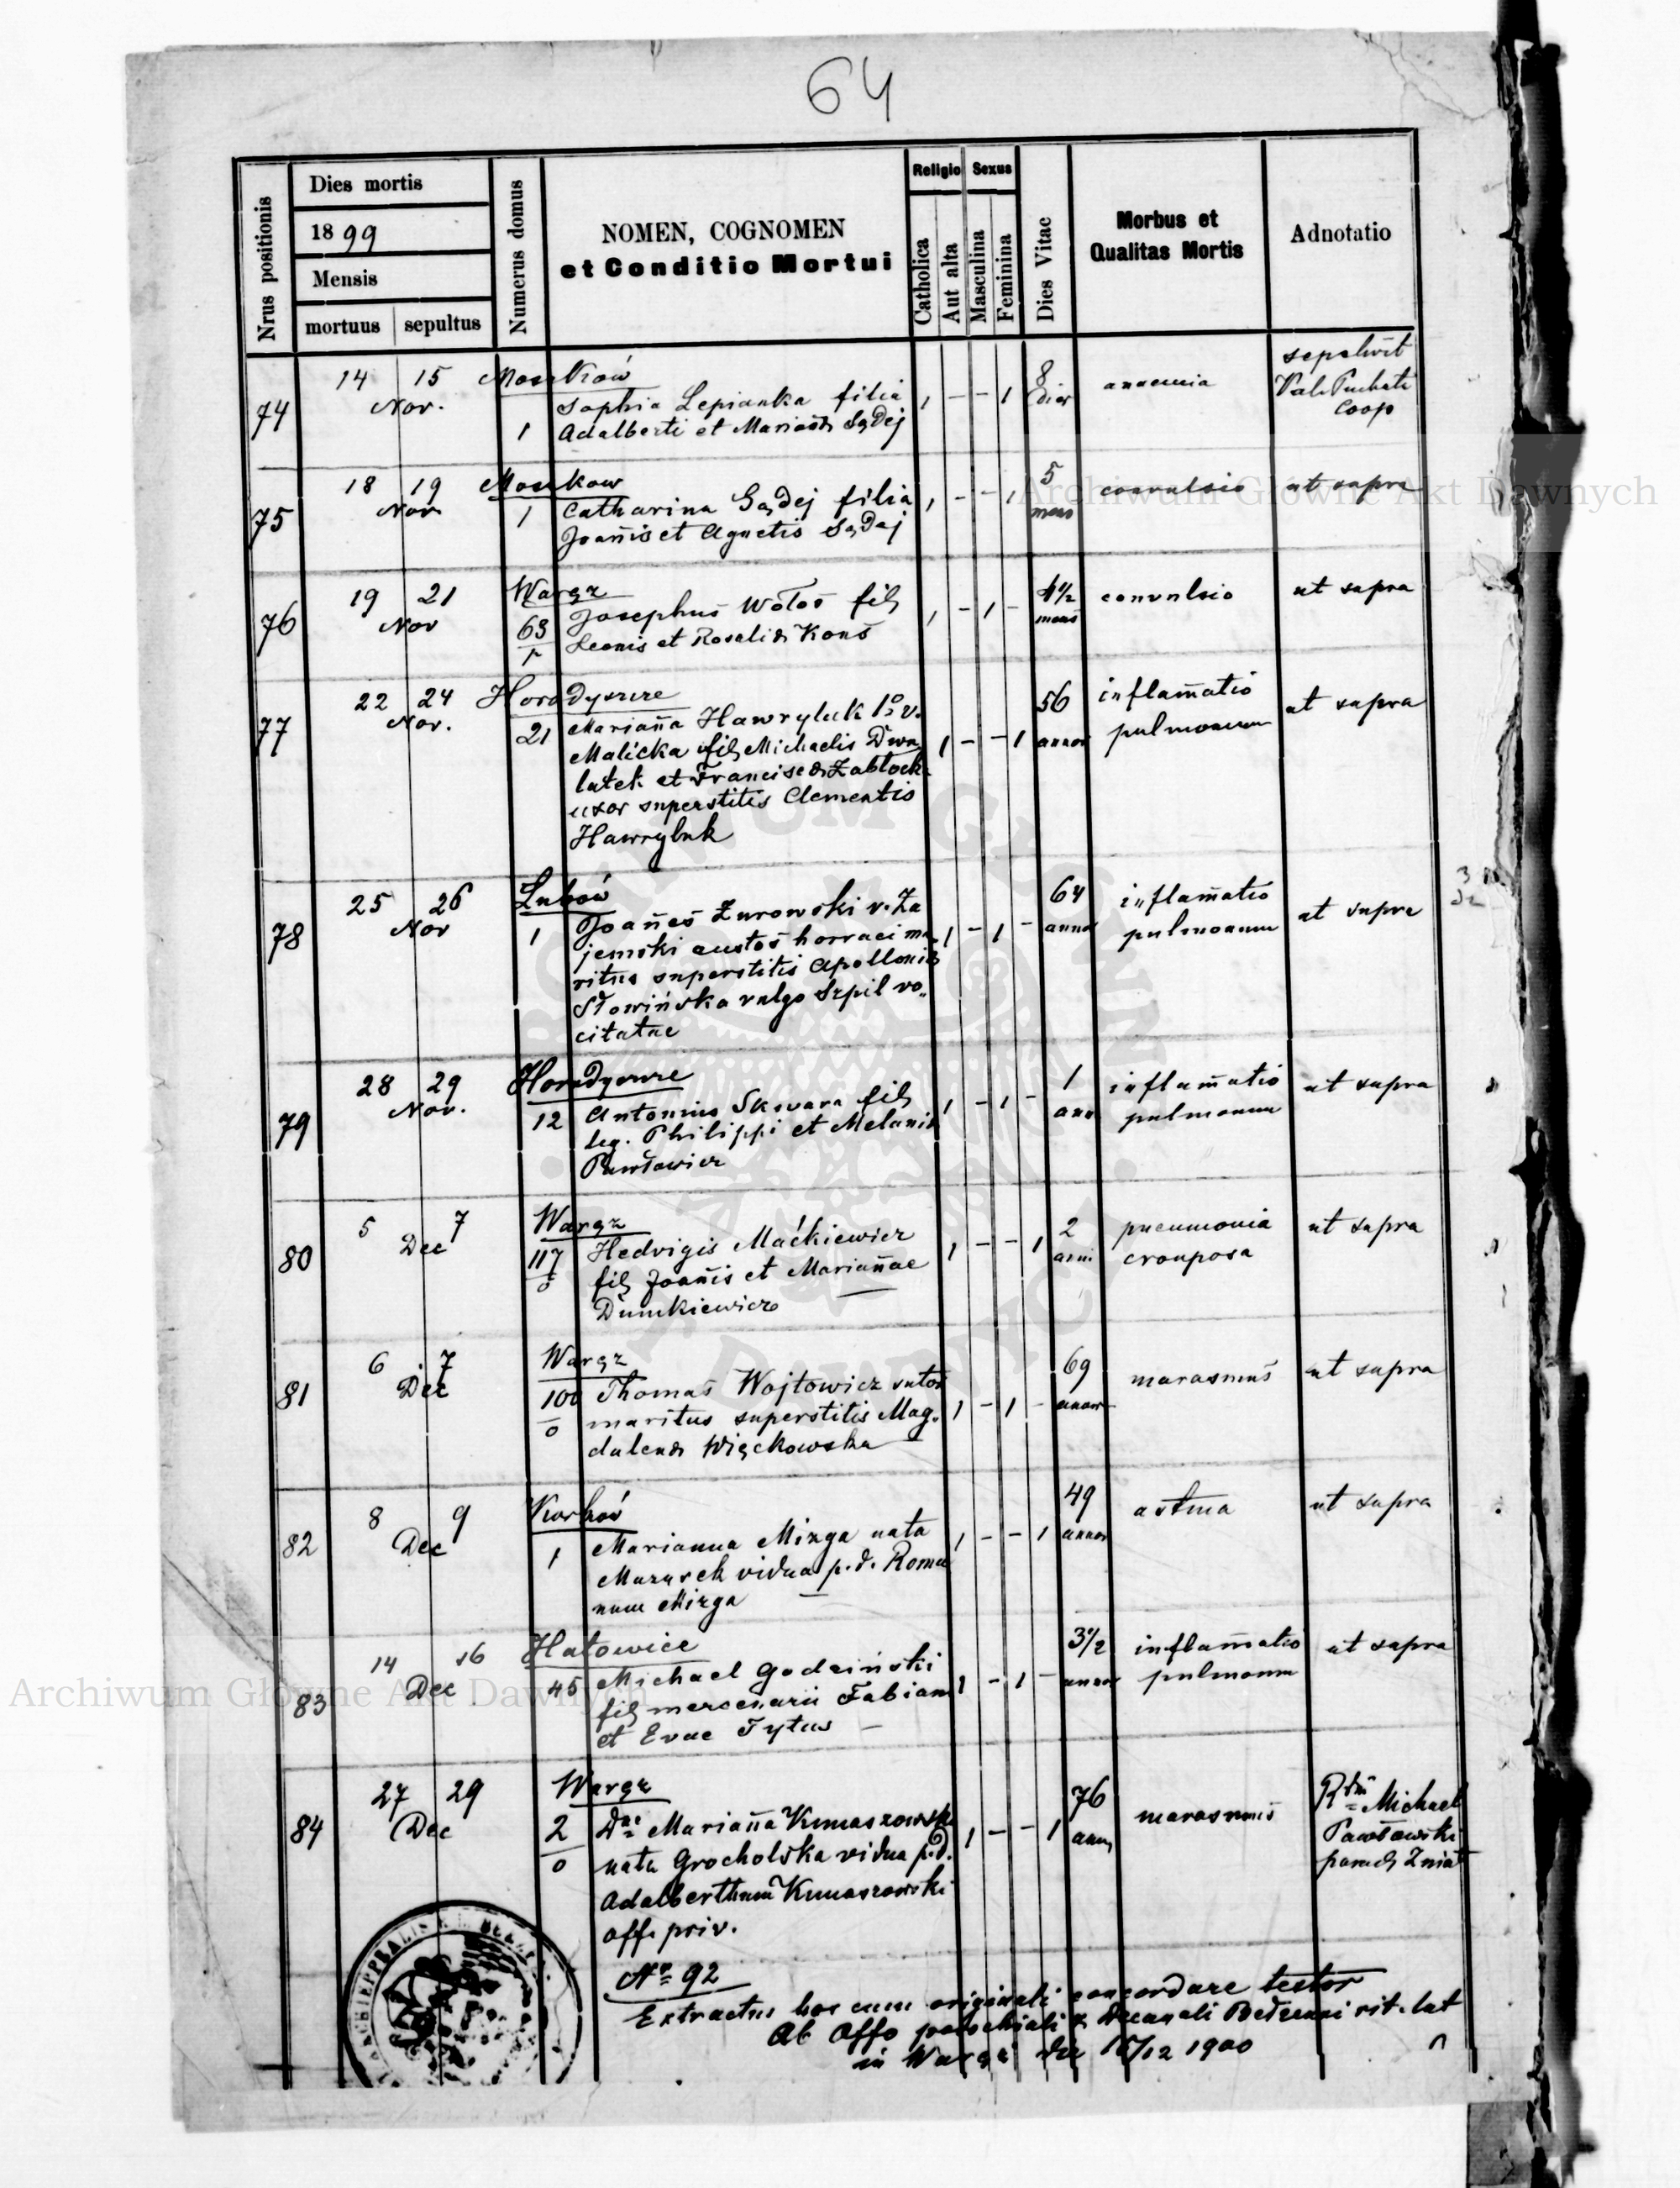 64
Nrus positionis
Dies mortis
1899
Mensis
mortuus sepultus
Numerus domus
NOMEN, COGNOMEN
et Conditio Mortui
Religio Sexus
Catholica
Aut alta
Masculina
Feminina
Dies Vitae
Morbus et
Qualitas Mortis
Adnotatio
74 14 15 Nov. Moszków
1 Sophia Lepianka filia
Adalberti et Mariañ Sądej
1 - - 1 8 dies anaemia
sepelivit
Val.
Coop
75 18 19 Nov Moszkow
1 Catharina Sądej filia
Joañis et Agnetis Sądej
1 - - 1 5 mens convulsio ut supra
76 19 21 Nov Waręz
63 Josephus Wołos fil
Leonis et Rosaliæ Kons
1 - 1 - 4½ mens convulsio ut supra
77 22 24 Nov. Horodyszcze
21 Mariañna Hawryluk 1º v.
Malicka fil Michaelis Dwu
latek et Francisc Zabłock
uxor superstitis Clementis
Hawryluk
1 - - 1 56 annor inflam̄atio
pulmonum
ut supra
78 25 26 Nov Lubów
1 Joañes Żurowski v. Za
jemski custos horraei ma
ritus superstitis Apolloniæ
Słowińska vulgo Szpil vo„
citatae
1 - 1 - 64 annor inflam̄atio
pulmonum
ut supra
79 28 29 Nov. Horodyszcze
12 Antonius Skwara fil
leg. Philippi et Melaniæ
Pawłowicz
1 - 1 - 1 ann inflam̄atio
pulmonum
ut supra
80 5 7 Dec Waręz
117
0 Hedvigis Maćkiewicz
fil Joañis et Mariañae
Dumkiewicz
1 - - 1 2 anni pneumonia
crouposa
ut supra
81 6 7 Dec Waręz
100
0 Thomas Wojtowicz sutor
maritus superstitis Mag„
dalenæ Więckowska
1 - 1 - 69 annor marasmus ut supra
82 8 9 Dec Korków
1 Marianna Mizga nata
Mazurek vidua p. d. Roma
num Mizga
1 - - 1 49 annor astma ut supra
83 14 16 Dec Hatowice
45 Michael Godziński
fil mercenarii Fabiani
et Evae Tytus
1 - 1 - 3½ annor inflam̄atio
pulmonum
ut supra
84 27 29 Dec Waręz
2
0 Dna Mariañna Kumaszowsk
nata Grocholska vidua p. d.
Adalberthum Kumaszowski
off. priv.
1 - - 1 76 ann marasmus
Rdm Michael
Pawłowski
paroch Zniat
Nro 92
Extractum hoc cum originali concordare testor
Ab Offo parochiali & decanali Bełzensi rit. lat
in Waręż die 15/12 1900
Archiwum Główne Akt Dawnych
Archiwum Główne Akt Dawnych